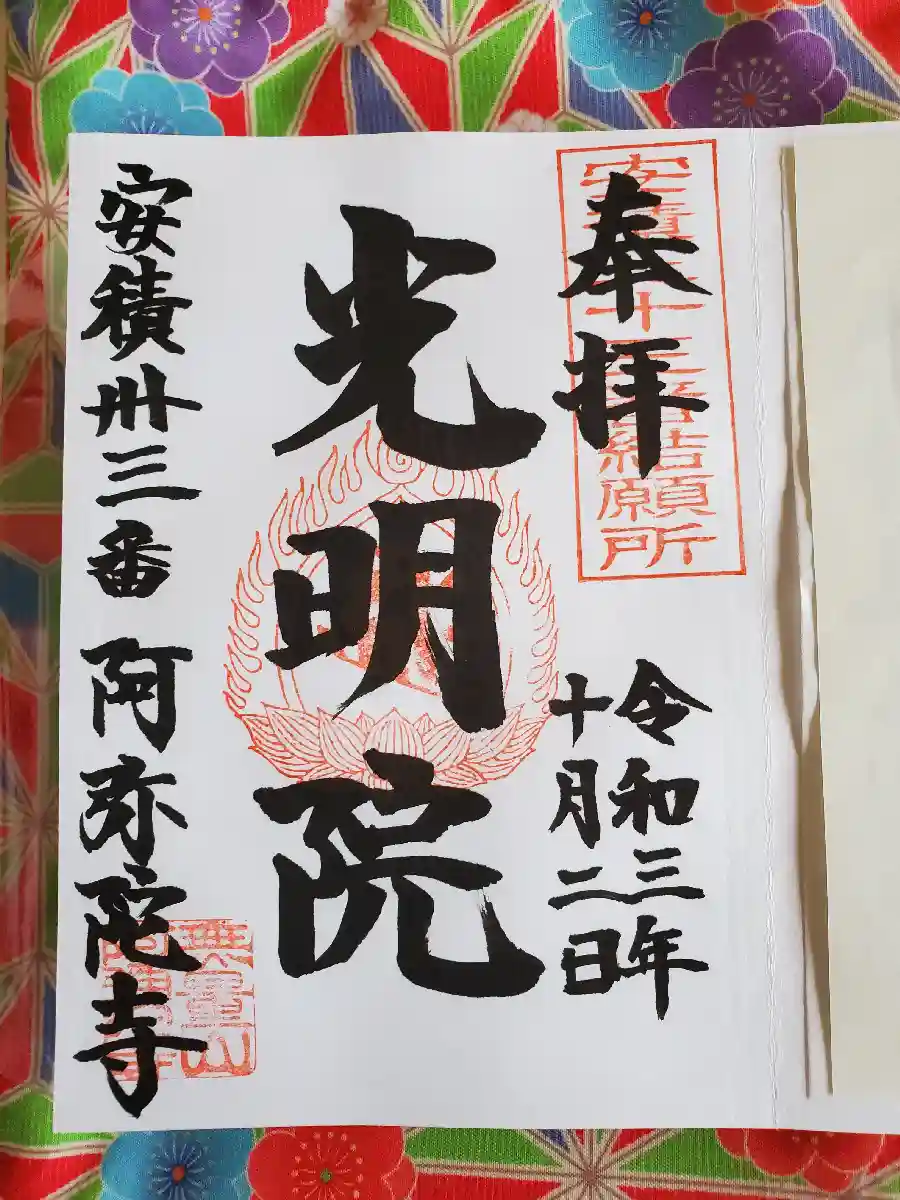 奉拝
安積三十三番結願所
令和三年
十月二日
光明院
安積卅三番 阿弥陀寺